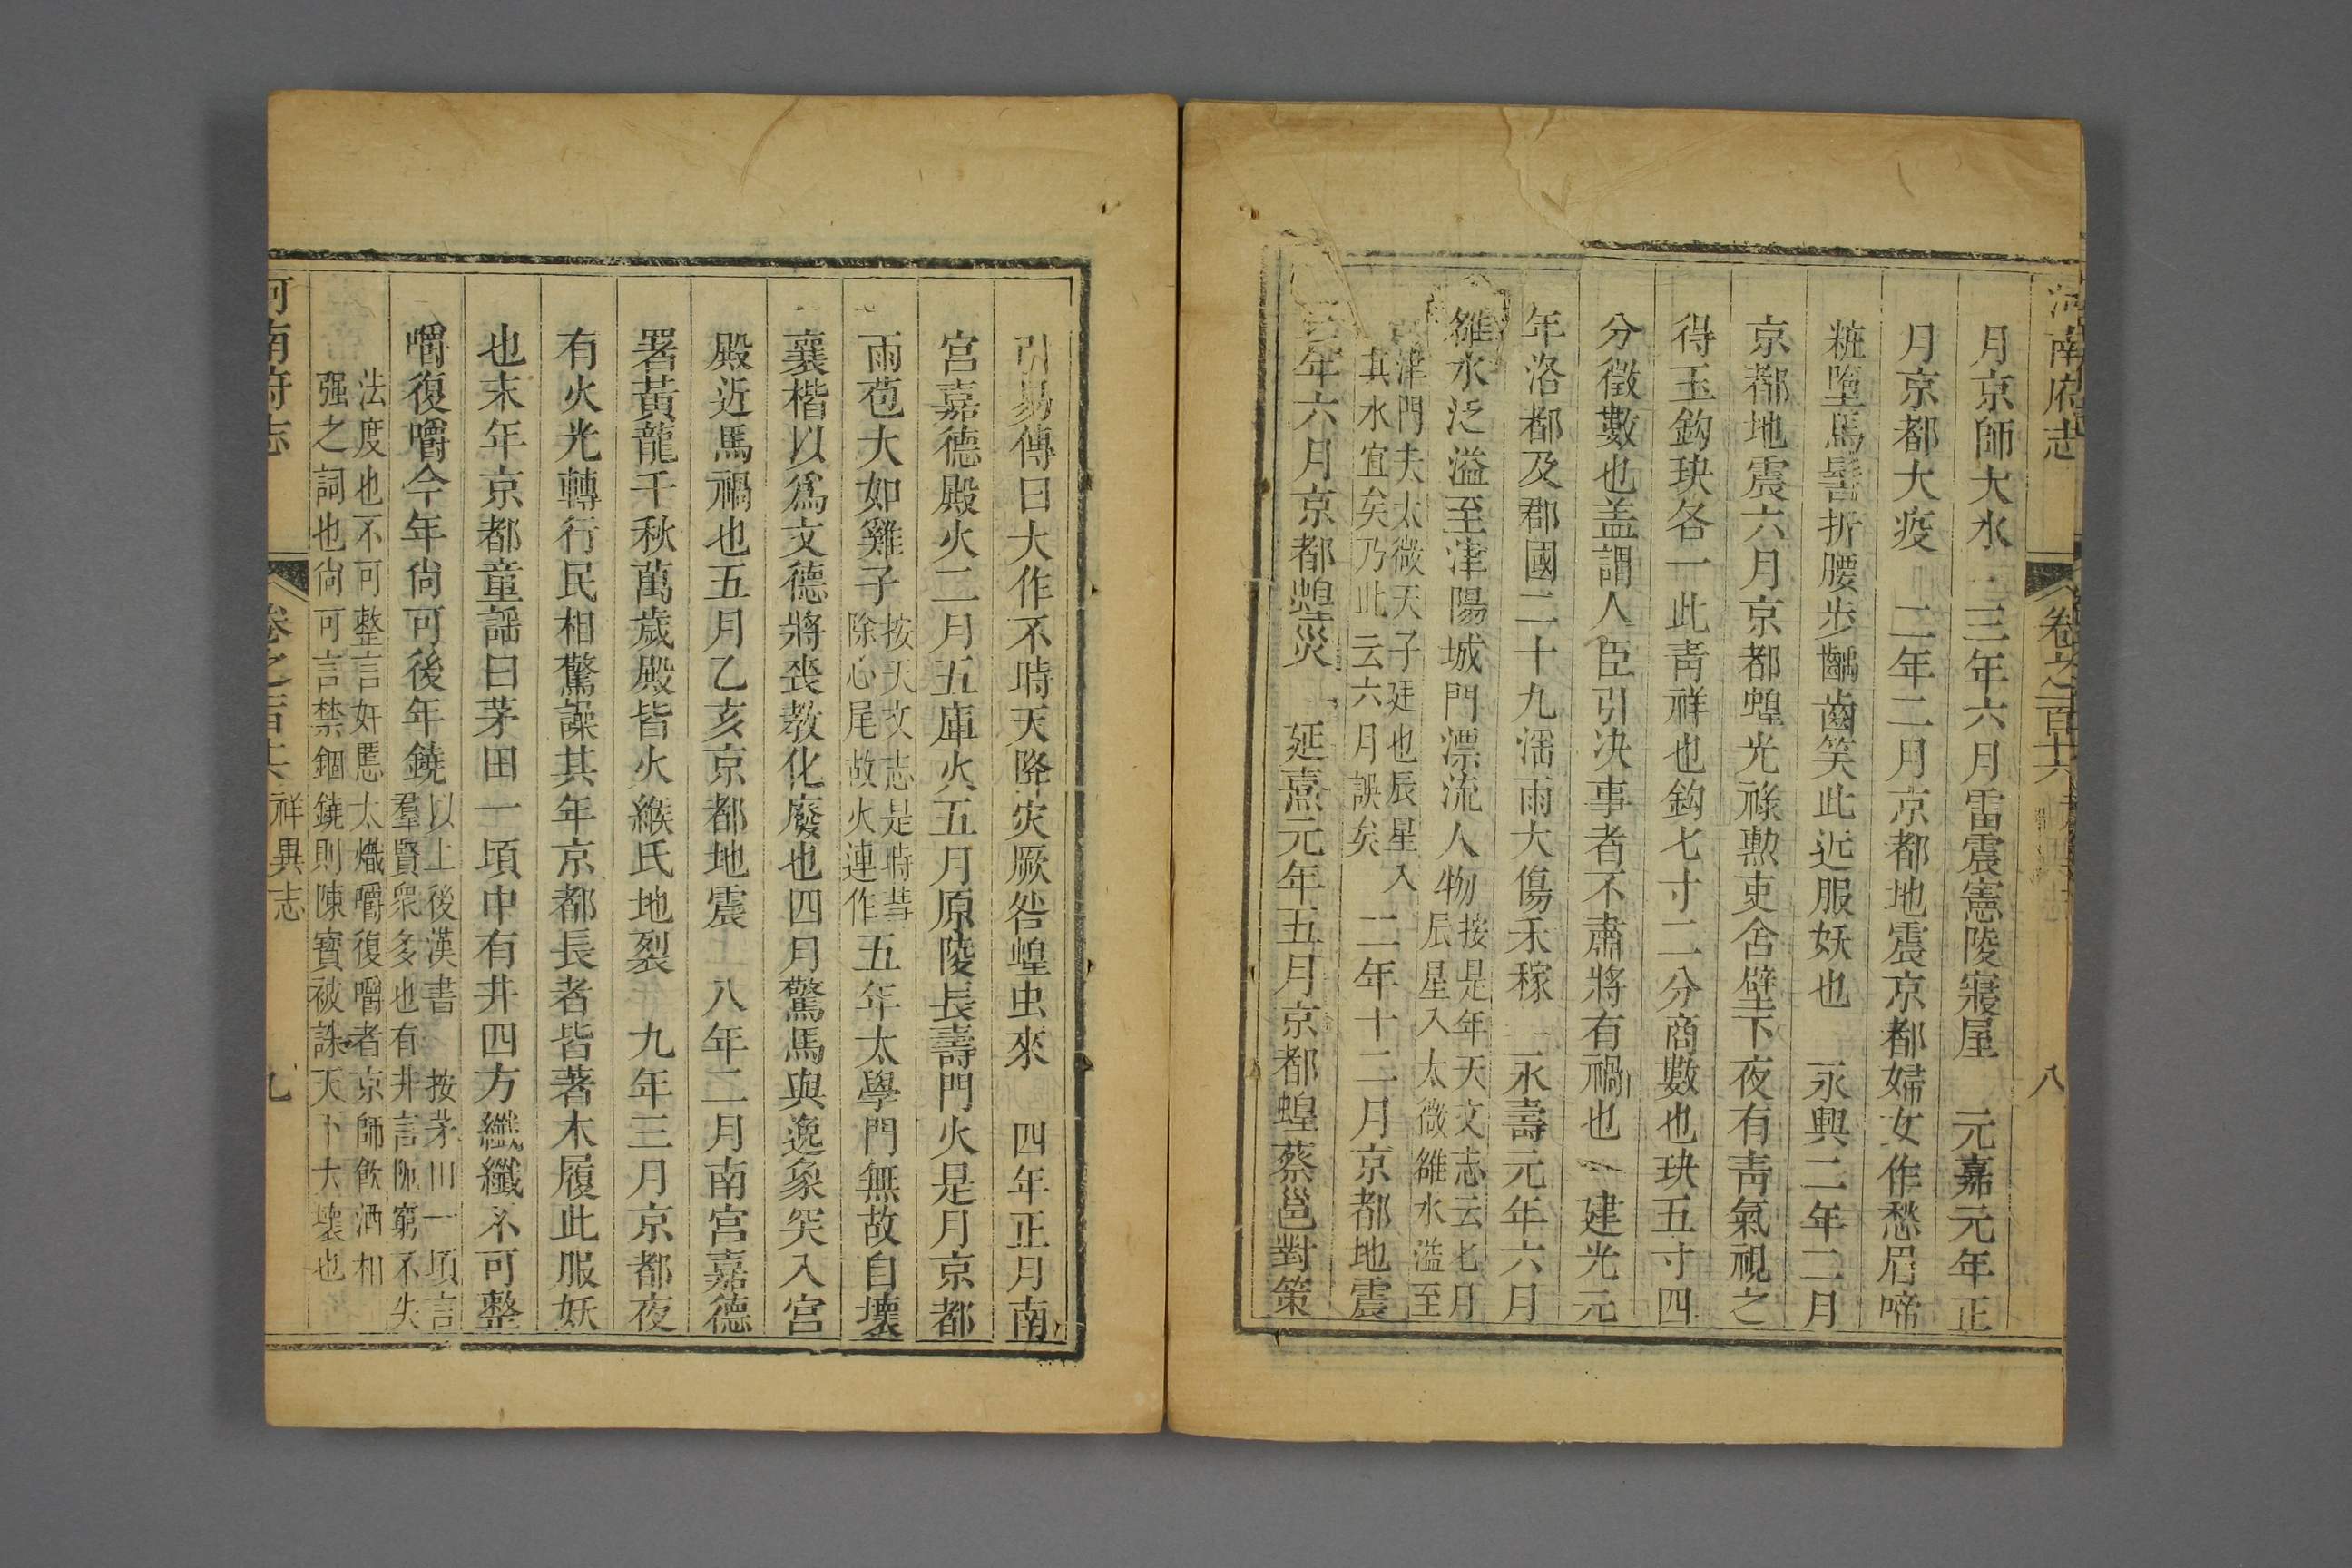 河南府志 卷之百十六 八
月京師大水 三年六月雷震憲陵寢屋 元嘉元年正
月京都大疫 二年二月京都地震京都婦女作愁眉啼
粧墮馬髻折腰步齲齒笑此近服妖也 永興二年二月
京都地震六月京都蝗光祿勲吏舍壁下夜有靑氣視之
得玉鈎玦各一此靑祥也鈎七寸二分商數也玦五寸四
分徵數也盖謂人臣引决事者不肅將有禍也 建光元
年洛都及郡國二十九淫雨大傷禾稼 永壽元年六月
雒水泛溢至津陽城門漂流人物按是年天文志云七月
辰星入太微雒水溢至
津門夫太微天子廷也辰星入
其水宜矣乃此云六月誤矣 二年十二月京都地震
年六月京都蝗災 延熹元年五月京都蝗蔡邕對策
引易傳曰大作不時天降灾厥咎蝗虫來 四年正月南
宮嘉德殿火二月五庫火五月原陵長壽門火是月京都
雨苞大如雞子按天文志是時彗
除心尾故火連作五年太學門無故自壞
襄楷以爲文德將喪教化廢也四月驚馬與逸象突入宮
殿近馬禍也五月乙亥京都地震 八年二月南宮嘉德
署黃龍千秋萬歲殿皆火緱氏地裂 九年三月京都夜
有火光轉行民相驚譟其年京都長者皆著木屐此服妖
也末年京都童謡曰茅田一頃中有井四方纖纖不可整
嚼復嚼今年尙可後年鐃以上後漢書 按茅田一頃言
羣賢衆多也有井言阨窮不失
法度也不可整言奸慝太熾嚼復嚼者京師飮酒相
强之詞也尙可言禁錮鐃則陳寶被誅天下大壞也
河南府志 卷之百十六 祥異志 九